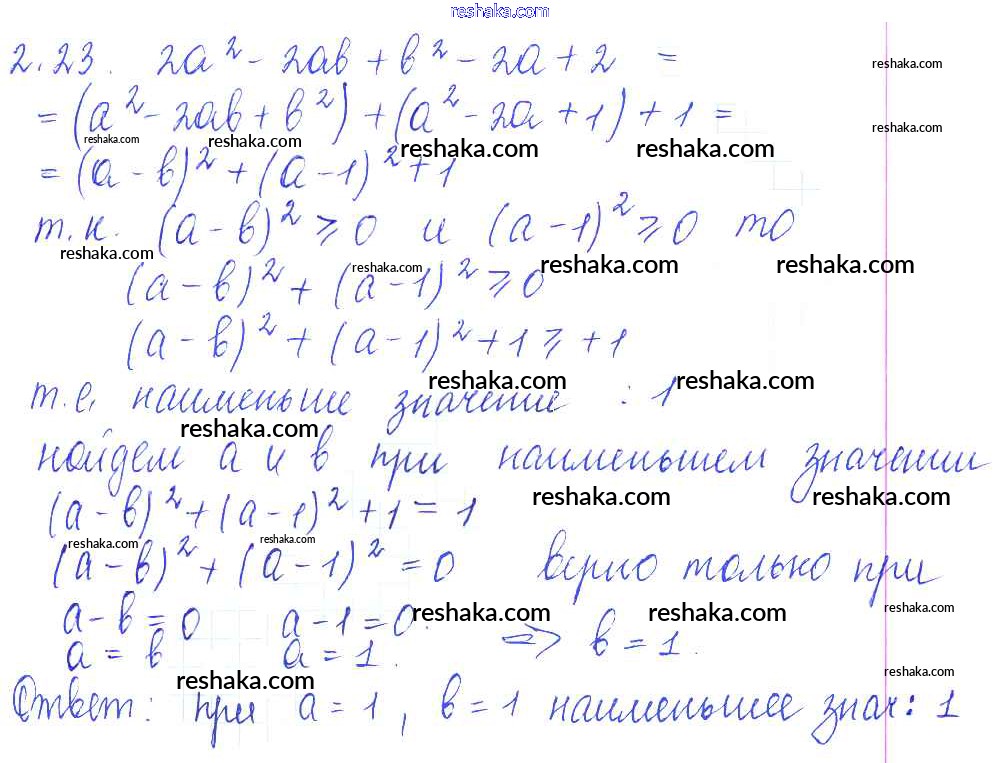 reshaka.com
2.23. 2a² - 2ab + b² - 2a + 2 =
reshaka.com
= (a² - 2ab + b²) + (a² - 2a + 1) + 1 =
reshaka.com
reshaka.com reshaka.com reshaka.com
= (a - b)² + (a - 1)² + 1
т.к. (a - b)² ⩾ 0 и (a - 1)² ⩾ 0 то
reshaka.com reshaka.com reshaka.com reshaka.com
(a - b)² + (a - 1)² ⩾ 0
(a - b)² + (a - 1)² + 1 ⩾ +1
reshaka.com reshaka.com
т.е. наименьше значение : 1
reshaka.com
найдем a и b при наименьшем значении
reshaka.com reshaka.com
(a - b)² + (a - 1)² + 1 = 1
reshaka.com reshaka.com
(a - b)² + (a - 1)² = 0 верно только при
reshaka.com reshaka.com reshaka.com
a - b = 0 a - 1 = 0.
a = b a = 1. => b = 1.
reshaka.com reshaka.com
Ответ: при a = 1, b = 1 наименьшее знач: 1
reshaka.com